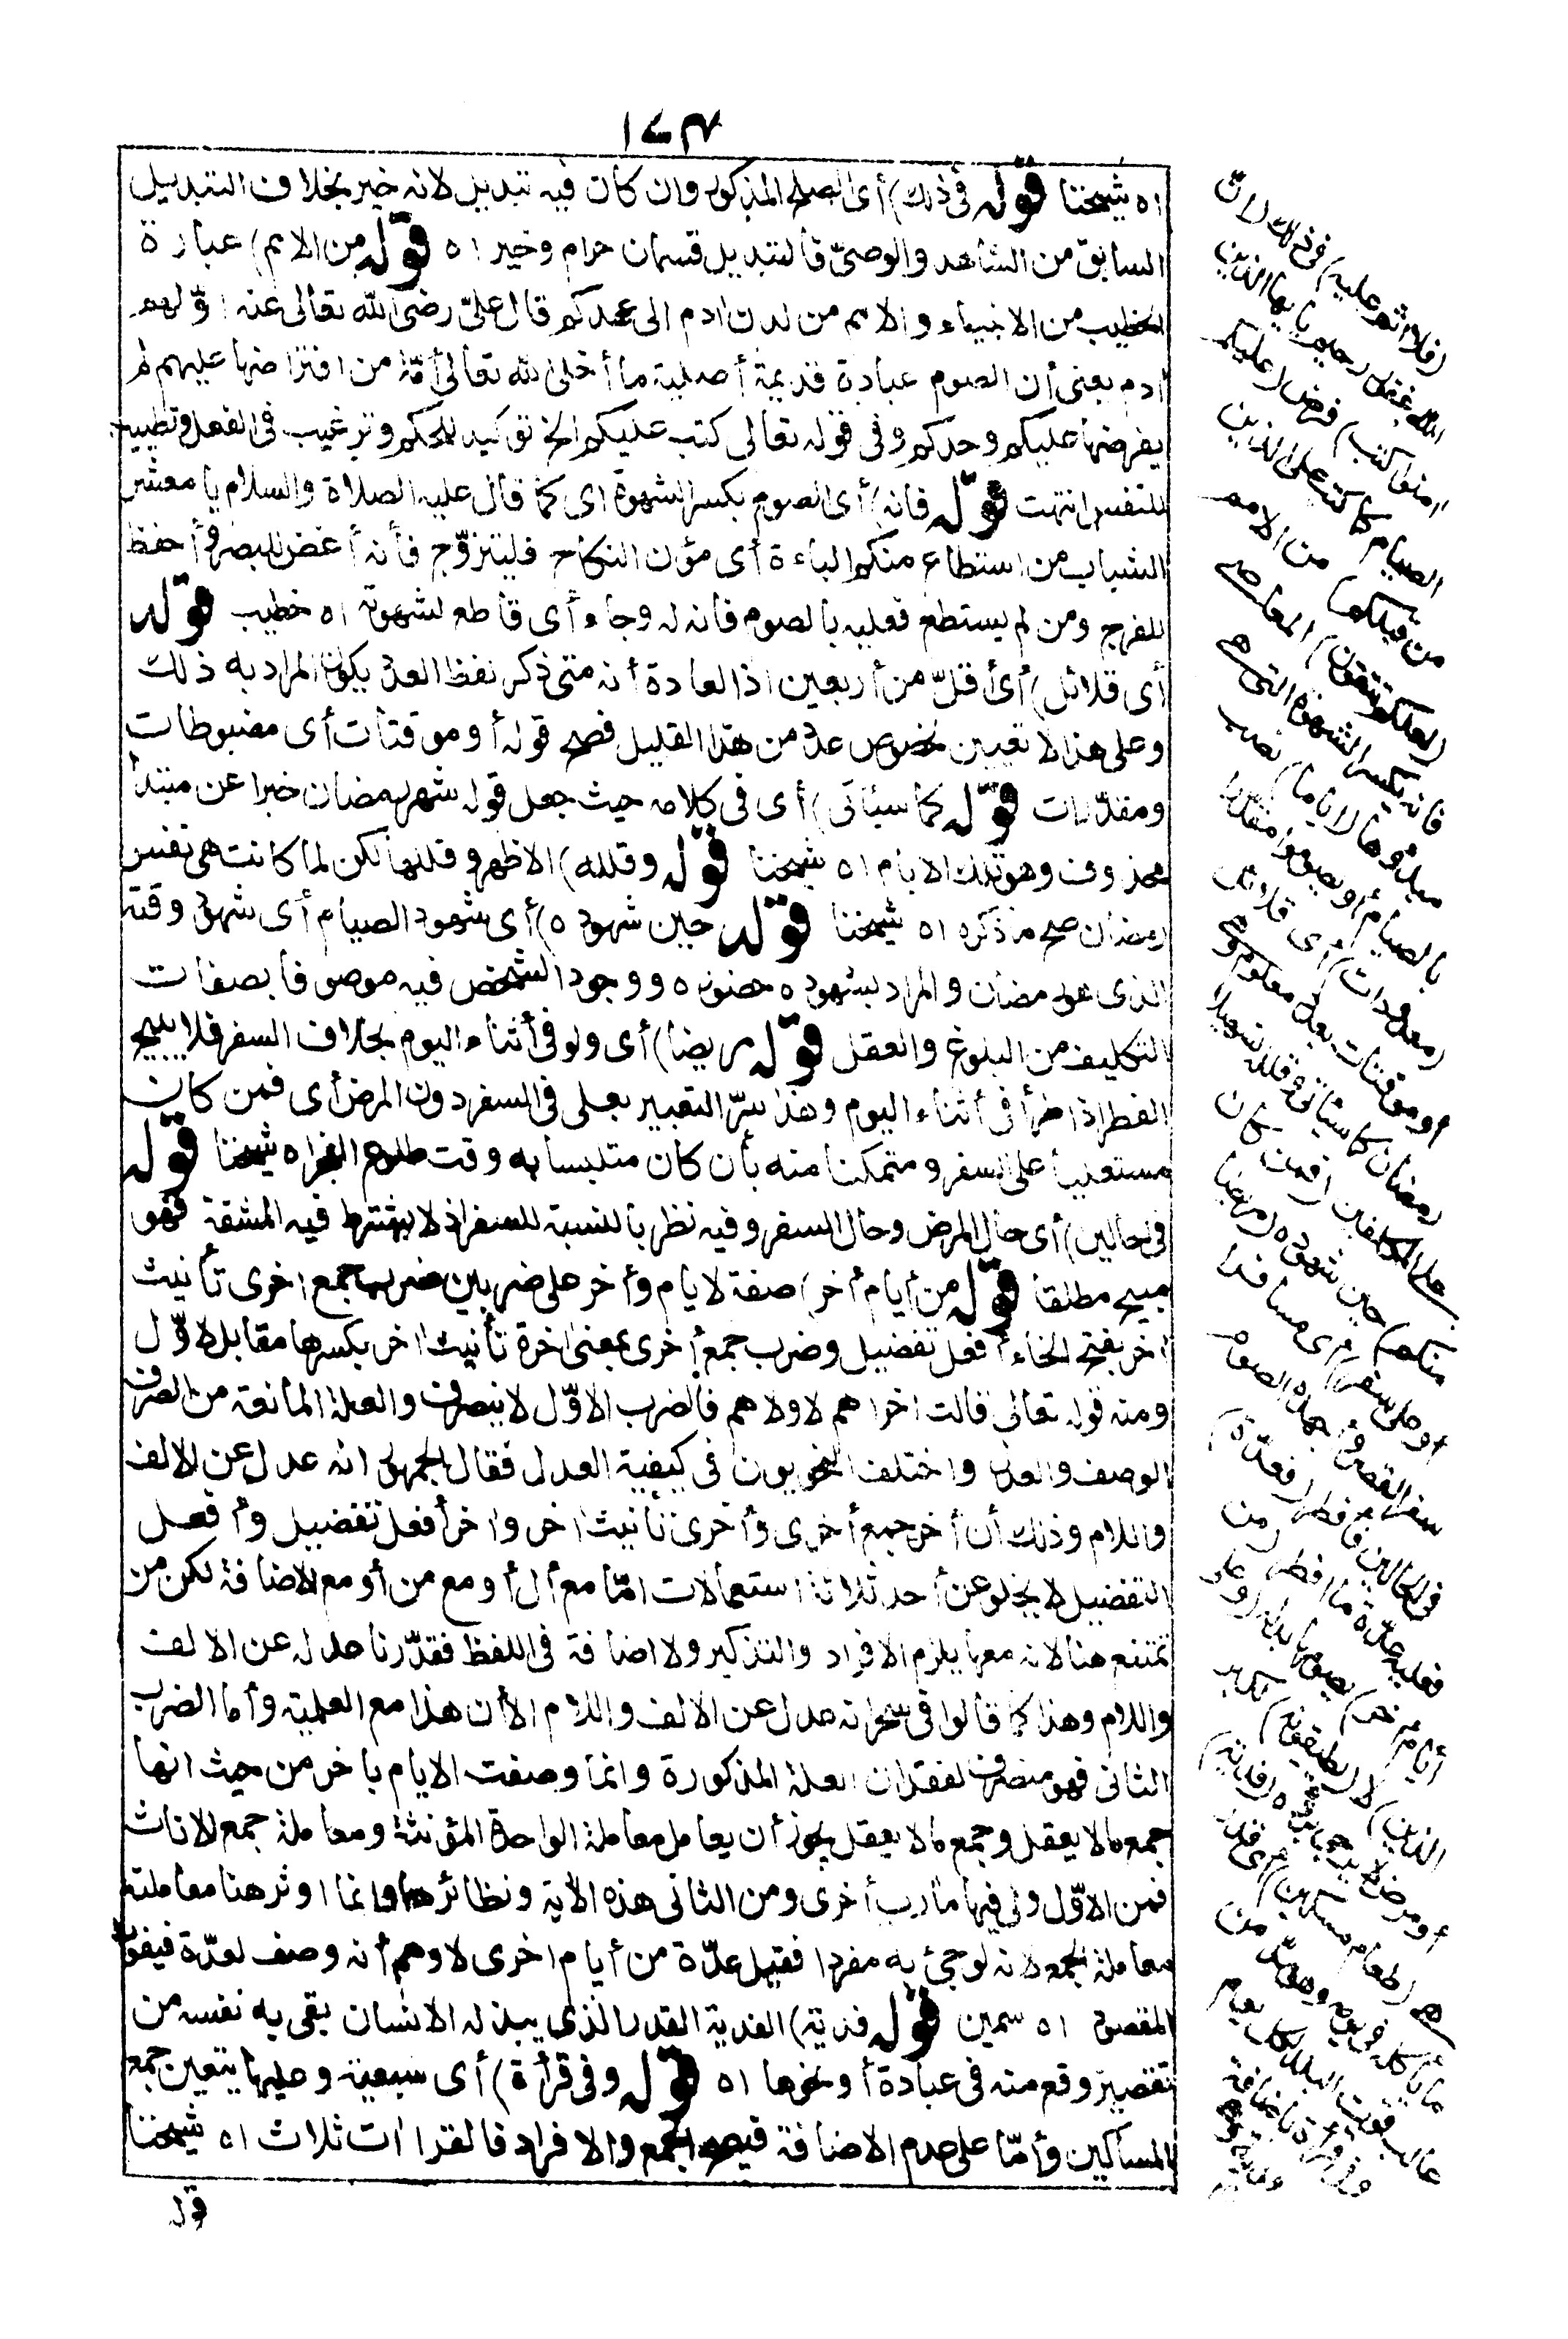 ١٤٣
اه شيخنا قوله في ذلك) أى الصلح المذكور وان كان فيه تبديل لانه خير بخلاف التبديل
السابق من الشاهد والوصىّ فالتبديل قسمان حرام وخير اه قوله من الامم) عبارة
الخطيب من الانبياء والامم من لدن ادم الى عهدكم قال علىّ رضى الله تعالى عنه اوّلهم
ادم يعنى أن الصوم عبادة قديمة أصلية ما أخلى الله تعالى أمّة من افتراضها عليهم لم
يفرضها عليكم وحدكم وفى قوله تعالى كتب عليكم الخ توكيد للحكم وترغيب فى الفعل وتطييب
للنفس انتهت قوله فانه) أى الصوم يكسر الشهوة اى كما قال عليه الصلاة والسلام يا معشر
الشباب من استطاع منكم الباءة أى مؤن النكاح فليتزوّج فأنه أغض للبصر وأحفظ
للفرج ومن لم يستطع فعليه بالصوم فانه له وجاء أى قاطع لشهوته اه خطيب قوله
أى قلائل) أى أقلّ من أربعين اذ العادة أنه متى ذكر لفظ العدد يكون المراد به ذلك
وعلى هذا لا تعيين لخصوص عدد من هذا القليل فصح قوله أو موقتات أى مضبوطات
ومقدّرات قوله كما سيأتى) أى فى كلامه حيث جعل قوله شهر رمضان خبرا عن مبتدا
محذوف وهو تلك الايام اه شيخنا قوله وقلله) الاظهر وقللها لكن لما كانت هى نفس
رمضان صح ما ذكره اه شيخنا قوله حين شهوده) أى شهود الصيام أى شهود وقته
الذى هو رمضان والمراد بشهوده حضوره ووجود الشخص فيه موصوفا بصفات
التكليف من البلوغ والعقل قوله مريضا) أى ولو فى أثناء اليوم بخلاف السفر فلا يبيح
الفطر اذا طرأ فى أثناء اليوم وهذا سرّ التعبير بعلى فى السفر دون المرض أى فمن كان
مستعليا على السفر ومتمكنا منه بأن كان متلبسا به وقت طلوع الفجر اه شيخنا قوله
فى الحالين) أى حال المرض وحال السفر وفيه نظر بالنسبة للسفر اذ لا يشترط فيه المشقة فهو
مبيح مطلقا قوله من أيام أخر) صفة لايام وأخر على ضربين ضرب جمع اخرى تأنيث
اخر بفتح الخاء أفعل تفضيل وضرب جمع أخرى بمعنى اخرة تأنيث اخر بكسرها مقابل لاوّل
ومنه قوله تعالى قالت اخراهم لاولاهم فالضرب الاوّل لا ينصرف والعلة المانعة من الصرف
الوصف والعدل واختلف النحويون فى كيفية العدل فقال الجمهور انه عدل عن الالف
واللام وذلك أن أخر جمع أخرى وأخرى تأنيث اخر واخر أفعل تفضيل وأفعل
التفضيل لا يخلو عن أحد ثلاثة استعمالات امّا مع أل أو مع من أو مع الاضافة لكن من
تمتنع هنا لانه معها يلزم الافراد والتذكير ولا اضافة فى اللفظ فقدّرنا عدله عن الالف
واللام وهذا كما قالوا فى سحر انه عدل عن الالف واللام الا أن هذا مع العلمية وأما الضرب
الثانى فهو منصرف لفقدان العلة المذكورة وانما وصفت الايام باخر من حيث انها
جمع ما لا يعقل وجمع ما لا يعقل يجوز أن يعامل معاملة الواحدة المؤنثة ومعاملة جمع الاناث
فمن الاوّل ولى فيها مارب أخرى ومن الثانى هذه الآية ونظائرها وانما اوثر هنا معاملته
معاملة الجمع لانه لو جئ به مفردا فقيل عدّة من أيام اخرى لاوهم أنه وصف لعدّة فيفوت
المقصود اه سمين قوله فدية) الفدية القدر الذى يبذله الانسان يقى به نفسه من
تقصير وقع منه فى عبادة أو نحوها اه قوله وفى قرأة) أى سبعية وعليها يتعين جمع
المساكين وأمّا على عدم الاضافة فيصح الجمع والافراد فالقراات ثلاث اه شيخنا
قوله
(فلا اثم عليه) فى ذلك (ان
الله غفور رحيم يا يها الذين
امنوا كتب) فرض (عليكم
الصيام كما كتب على الذين
من قبلكم) من الامم
(لعلكم تتقون) المعاصى
فانه يكسر الشهوة التى هى
مبدؤها (اياما) نصب
بالصيام أو يصوموا مقدرا
(معدودات) أى قلائل
أو موقتات بعدد معلوم وهى
رمضان كما سيأتى وقلله تسهيلا
على المكلفين (فمن كان
منكم) حين شهوده (مريضا
أو على سفر) أى مسافرا
سفر القصر وأجهده الصوم
فى الحالين فأفطر (فعدّة)
فعليه عدّة ما افطر (من
أيام أخر) يصومها بدله (وعلى
الذين) لا (يطيقونه) لكبر
أو مرض لا يرجى برؤه (فدية)
هى (طعام مسكين) أى قدر
ما يأكله فى يومه وهو مدّ من
غالب قوت البلد لكل يوم
وفى قرأة باضافة